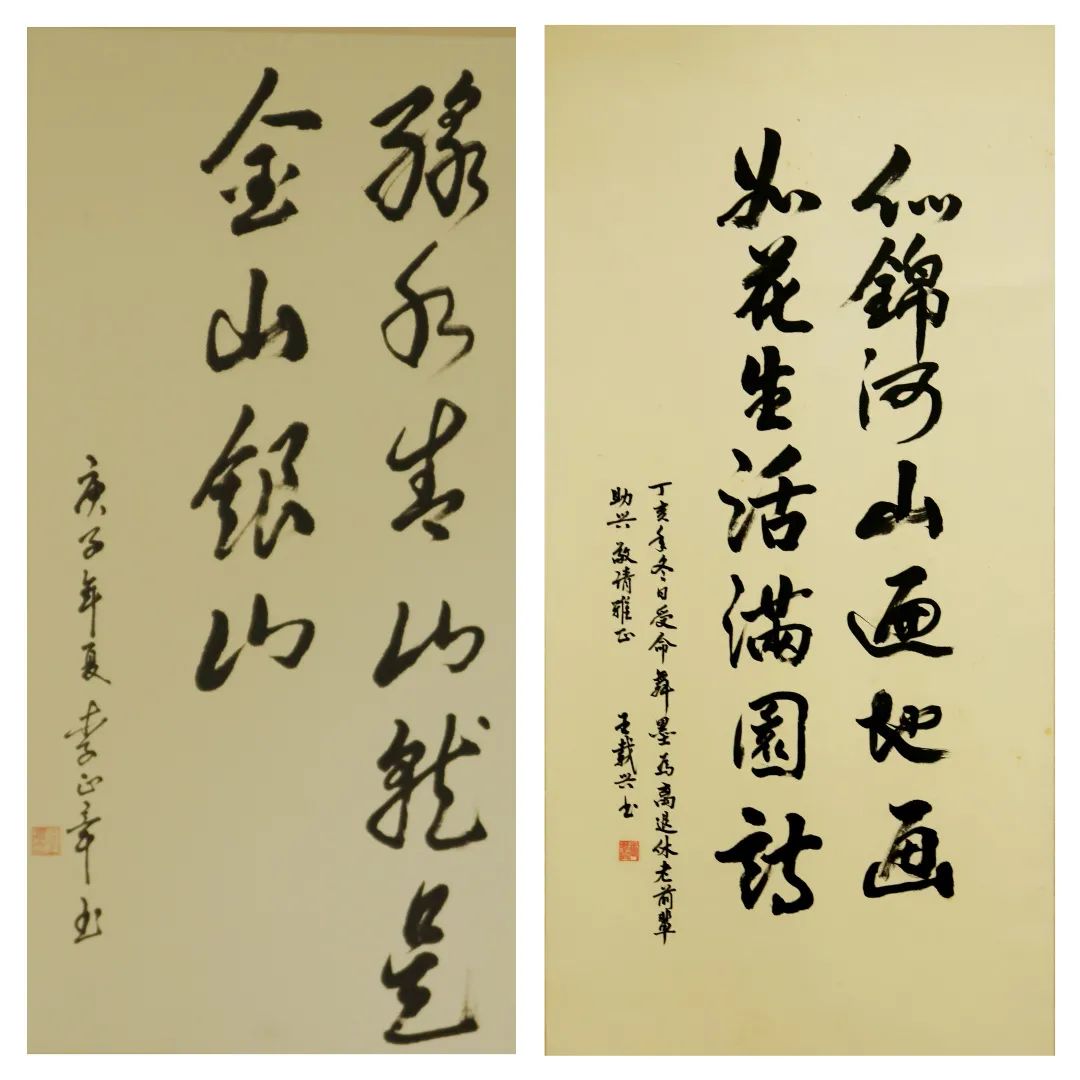 綠水青山就是
金山銀山
庚子年夏 李正章书
似錦河山遍地画
如花生活满園詩
丁亥年冬日受命舞墨为离退休老前輩
助兴 敬请雅正
王載兴书